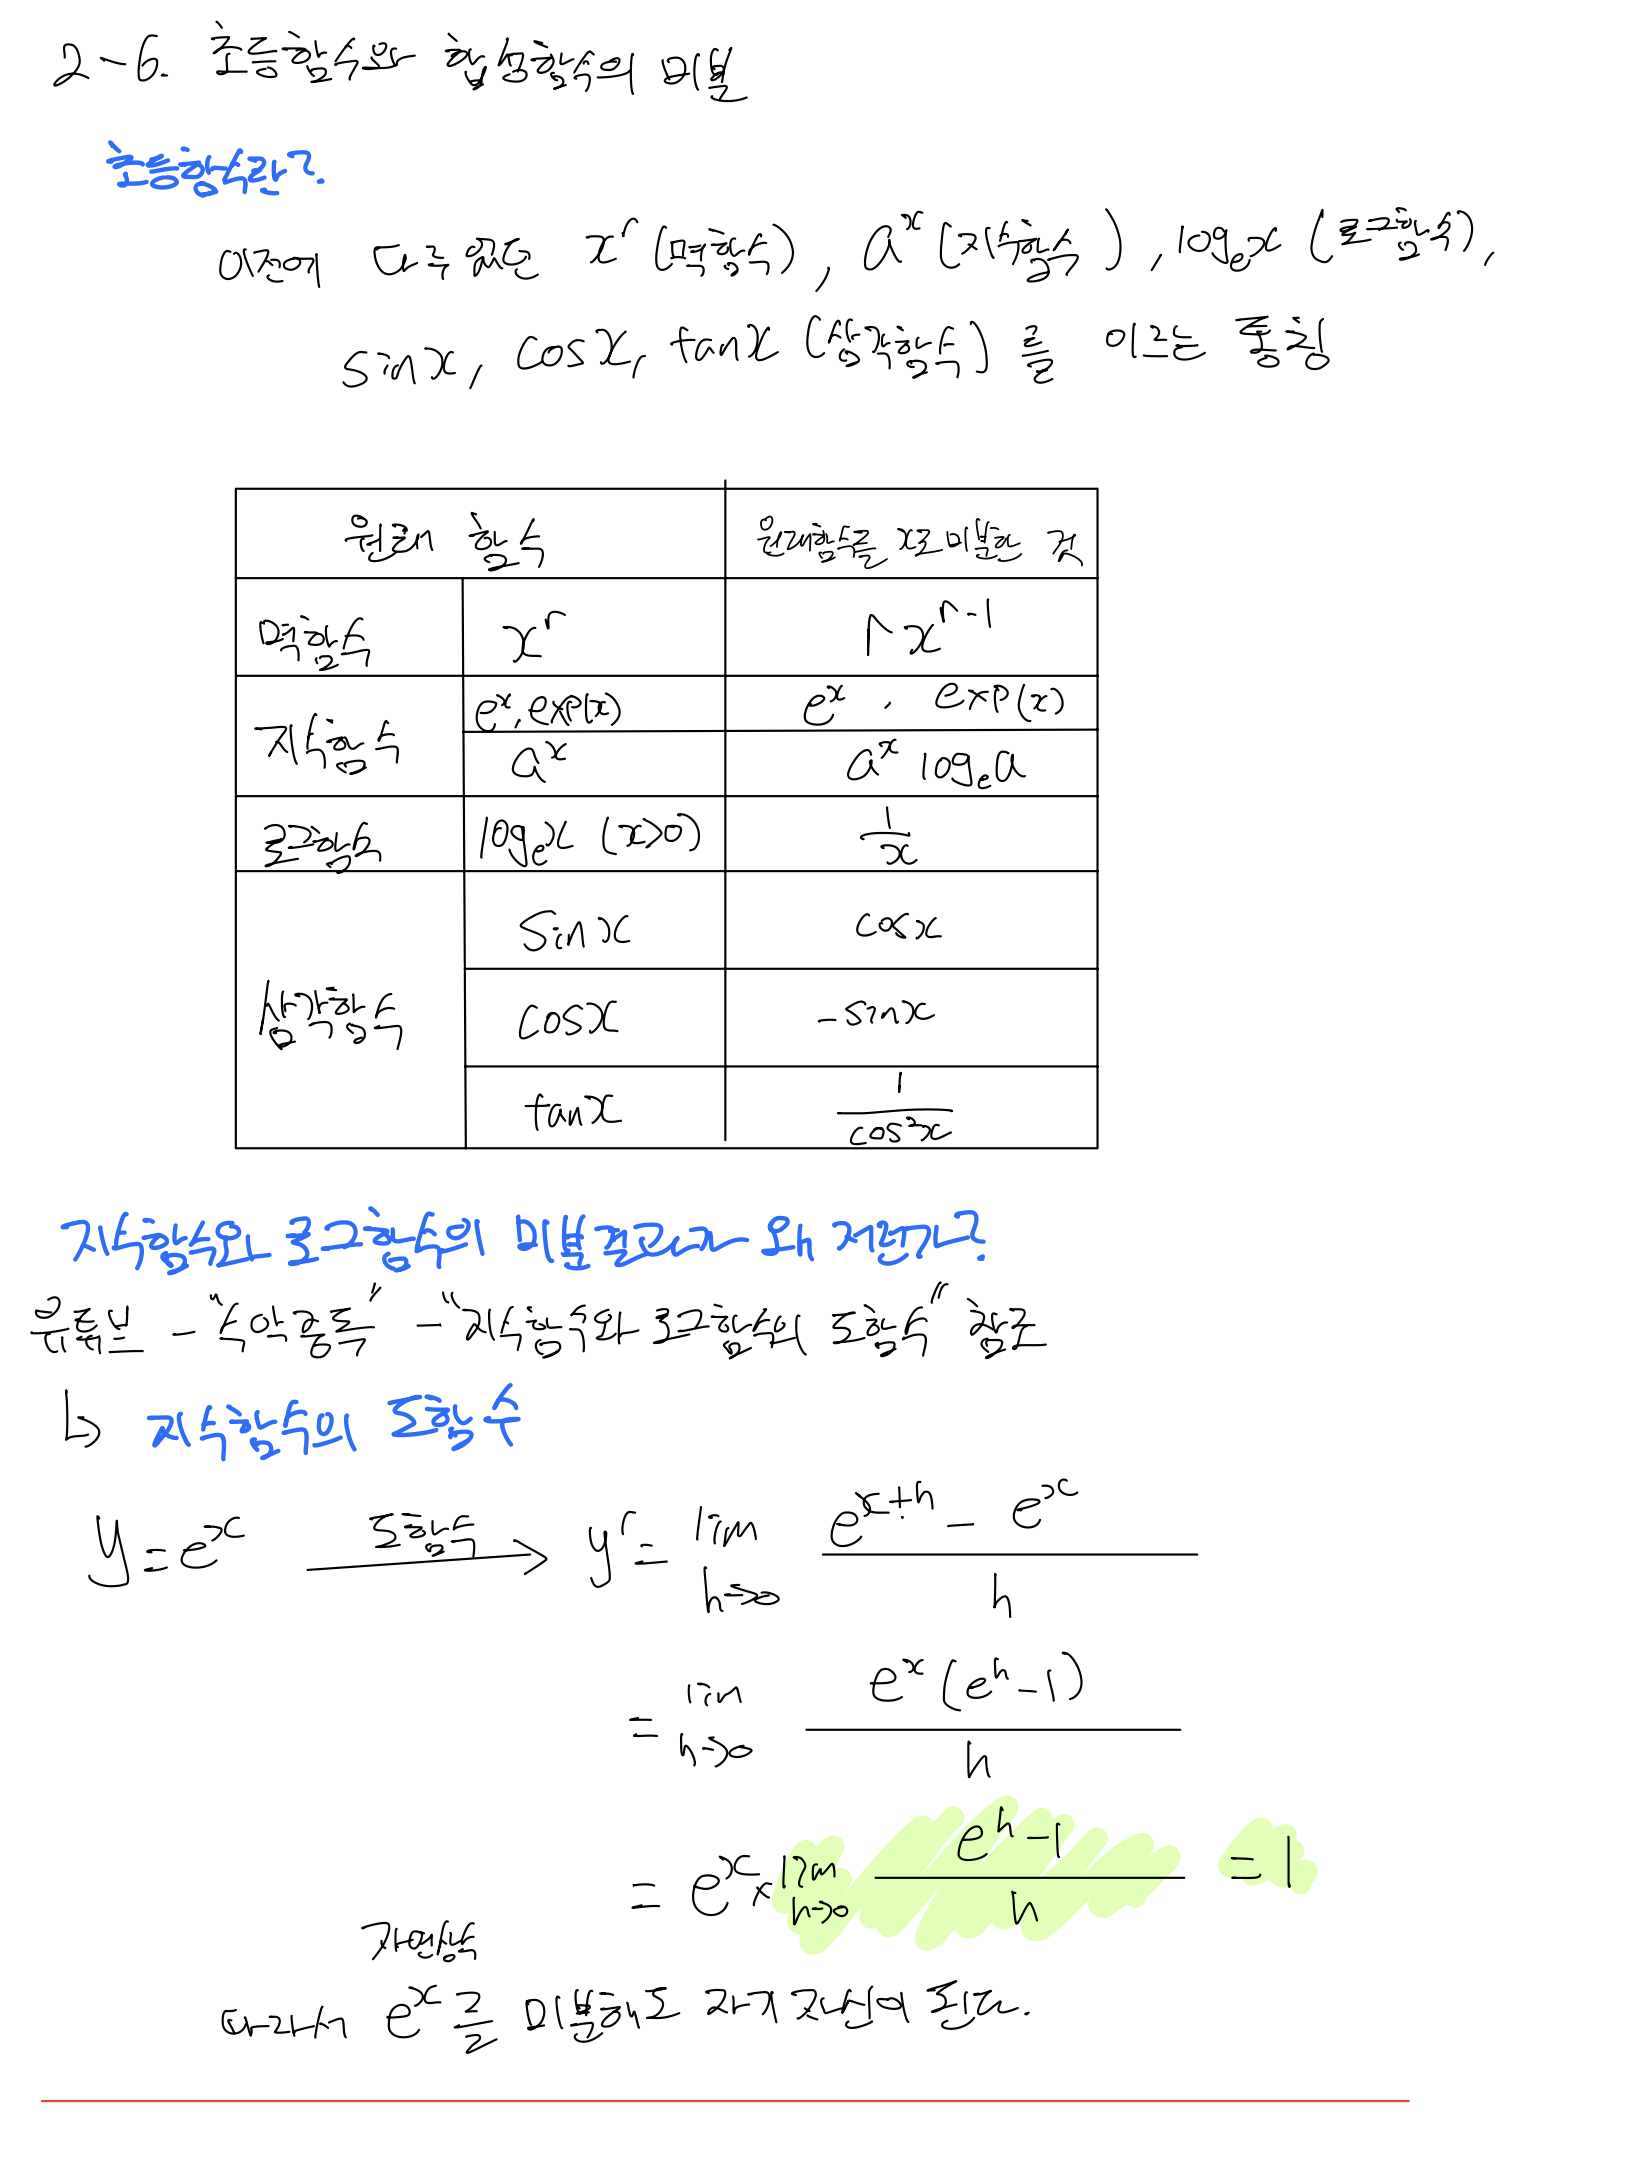 2-6. 초등함수와 합성함수의 미분
초등함수란?
이전에 다루었던 x^r (멱함수), a^x (지수함수), log_e x (로그함수),
sinx, cosx, tanx (삼각함수) 를 이르는 통칭
원래 함수 원래함수를 x로 미분한 것
멱함수 x^r r x^(r-1)
지수함수 e^x, exp(x) e^x, exp(x)
a^x a^x log_e a
로그함수 log_e x (x>0) 1/x
삼각함수 sinx cosx
cosx -sinx
tanx 1/cos²x
지수함수와 로그함수의 미분결과가 왜 저런가?
유튜브 - "수악중독" - "지수함수와 로그함수의 도함수" 참조
↳ 지수함수의 도함수
y = e^x 도함수→ y' = lim h→0 (e^(x+h) - e^x)/h
= lim h→0 e^x(e^h - 1)/h
= e^x × lim h→0 (e^h - 1)/h = 1
자연상수
따라서 e^x를 미분해도 자기 자신이 된다.